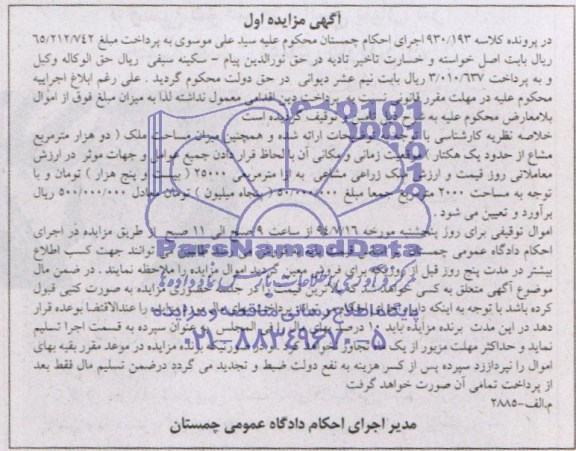 آگهی مزایده اول
در پرونده کلاسه ۹۳۰/۱۹۳ اجرای احکام چمستان محکوم علیه سید علی موسوی به پرداخت مبلغ ۶۵/۲۱۲/۷۴۲
ریال بابت اصل خواسته و خسارت تاخیر تادیه در حق نورالدین پیام - سکینه سیفی ریال حق الوکاله وکیل
و به پرداخت ۳/۰۱۰/۶۳۷ ریال بابت نیم عشر دیوانی در حق دولت محکوم گردید . علی رغم ابلاغ اجراییه
محکوم علیه در مهلت مقرر قانونی نسبت به پرداخت دین اقدامی معمول نداشته لذا به میزان مبلغ فوق از اموال
بلامعارض محکوم علیه به شرح ذیل توقیف گردیده است
خلاصه نظریه کارشناسی با توجه به توضیحات ارائه شده و همچنین میزان مساحت ملک ( دو هزار مترمربع
مشاع از حدود یک هکتار ) موقعیت زمانی و مکانی آن با لحاظ قرار دادن جمیع عوامل و جهات موثر در ارزش
معاملاتی روز قیمت و ارزش ملک زراعی مشاعی به ازا مترمربعی ۲۵۰۰۰ ( بیست و پنج هزار ) تومان و با
توجه به مساحت ۲۰۰۰ مترمربع جمعا مبلغ ۵۰/۰۰۰/۰۰۰ ( پنجاه میلیون ) تومان معادل ۵۰۰/۰۰۰/۰۰۰ ریال
برآورد و تعیین می شود .
اموال توقیفی برای روز پنجشنبه مورخه ۹۴/۷/۱۶ از ساعت ۹ صبح الی ۱۱ صبح از طریق مزایده در اجرای
احکام دادگاه عمومی چمستان به توانند جهت کسب اطلاع
بیشتر در مدت پنج روز قبل از روزیکه برای فروش معین گردید اموال مزایده را ملاحظه نمایند . در ضمن مال
موضوع آگهی متعلق به کسی خواهد بود که بالاترین قیمت را در جلسه حضوری مزایده به صورت کتبی قبول
کرده باشد با توجه به اینکه دادورز پرداخت بهای اموال را عندالاقتضا بوعده قرار
دهد در این مدت برنده مزایده باید ۱۰ درصد بهای مال را فی المجلس به عنوان سپرده به قسمت اجرا تسلیم
نماید و حداکثر مهلت مزبور از یک ماه تجاوز نخواهد کرد و در صورتیکه برنده مزایده در موعد مقرر بقیه بهای
اموال را نپردازد سپرده پس از کسر هزینه به نفع دولت ضبط و تجدید می گردد درضمن تسلیم مال فقط بعد
از پرداخت تمامی آن صورت خواهد گرفت
م.الف-۲۸۸۵
مدیر اجرای احکام دادگاه عمومی چمستان
ParsNamadData
مرکز گردآوری اطلاعات پارس نماد داده ها
پایگاه اطلاع رسانی مناقصه و مزایده
۰۲۱-۸۸۳۴۹۶۷۰-۵